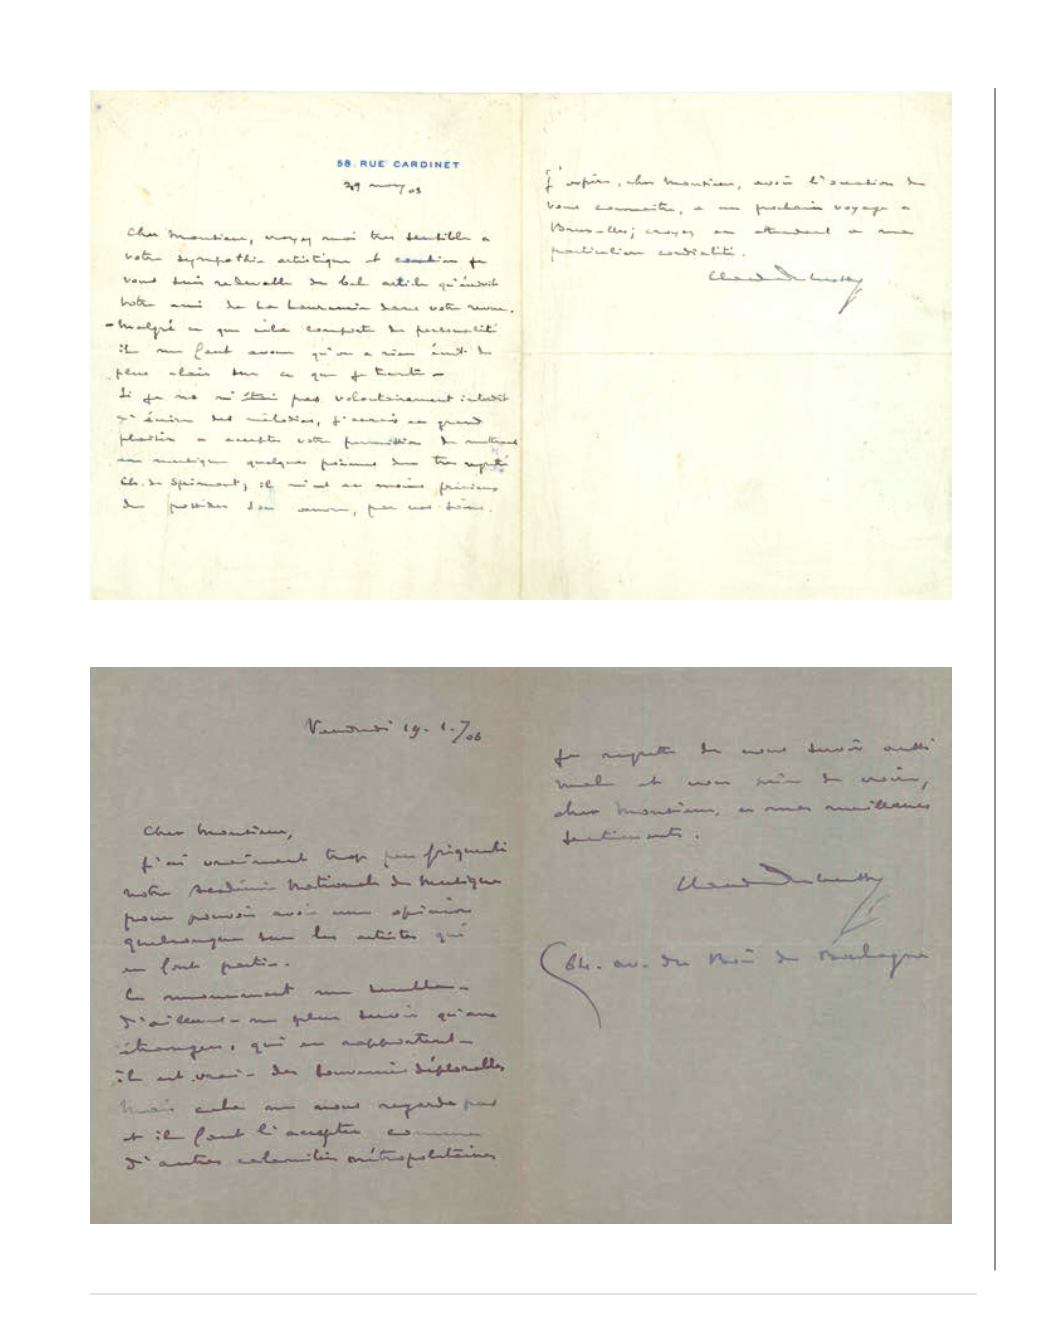 58. RUE CARDINET
29 mars 03
Cher Monsieur, croyez moi très sensible à
votre sympathie artistique et combien je
vous suis redevable du bel article qu'écrivit
votre ami de La Laurencie dans votre revue.
– Malgré ce que cela comporte de personnalité
il me faut avouer qu'on a rien écrit de
plus clair sur ce que je tente –
Si je ne m'étais pas volontairement interdit
d'écrire des mélodies, j'aurais eu grand
plaisir à accepter votre permission de mettre
en musique quelques poèmes du très
Ch. de Sprimont, il m'est au moins précieux
de posséder son œuvre, par vos soins.
J'espère, cher Monsieur, avoir l'occasion de
vous connaître, à un prochain voyage à
Bruxelles; croyez en attendant à ma
particulière cordialité.
Claude Debussy
Vendredi 19. 1. /06
Cher Monsieur,
J'ai vraiment trop peu fréquenté
notre Académie Nationale de Musique
pour pouvoir avoir une opinion
quelconque sur les artistes qui
en font partie.
Ce monument me semble –
d'ailleurs – ne plus servir qu'aux
étrangers, qui en rapportent –
il est vrai – des souvenirs déplorables
Mais cela ne nous regarde pas
et il faut l'accepter comme
d'autres calamités métropolitaines
Je regrette de vous servir aussi
mal et vous prie de croire,
cher Monsieur, à mes meilleurs
sentiments.
Claude Debussy
64. av. du Bois de Boulogne